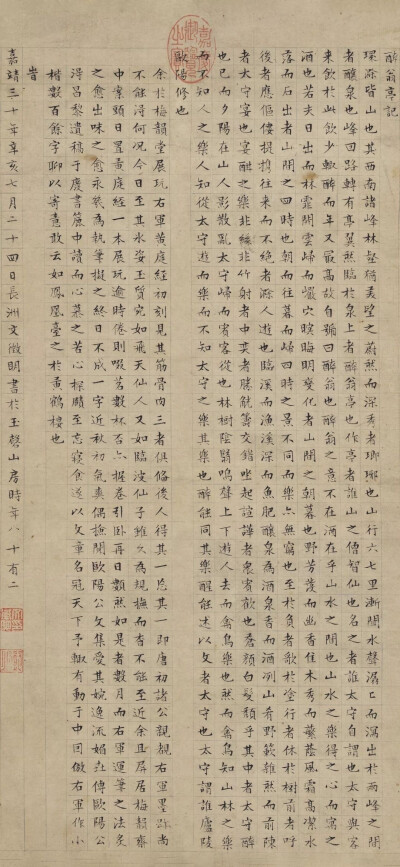 醉翁亭記
環滁皆山也其西南諸峰林壑猶美望之蔚然而深秀者瑯琊也山行六七里漸聞水聲潺〻而瀉出於兩峰之間
者釀泉也峰回路轉有亭翼然臨於泉上者醉翁亭也作亭者誰山之僧智仙也名之者誰太守自謂也太守與客
來飲於此飲少輒醉而年又最高故自號曰醉翁也醉翁之意不在酒在乎山水之間也山水之樂得之心而寓之
酒也若夫日出而林霏開雲歸而巖穴暝晦明變化者山間之朝暮也野芳發而幽香佳木秀而繁蔭風霜高潔水
落而石出者山間之四時也朝而往暮而歸四時之景不同而樂亦無窮也至於負者歌於塗行者休於樹前者呼
後者應傴僂提攜往來而不絕者滁人遊也臨溪而漁溪深而魚肥釀泉為酒泉香而酒冽山肴野蔌雜然而前陳
者太守宴也宴酣之樂非絲非竹射者中奕者勝觥籌交錯坐起諠譁者衆賓歡也蒼顏白髮頹乎其中者太守醉
也已而夕陽在山人影散亂太守歸而賓客從也林樹陰翳鳴聲上下遊人去而禽鳥樂也然而禽鳥知山林之樂
而不知人之樂人知從太守遊而樂而不知太守之樂其樂也醉能同其樂醒能述以文者太守也太守謂誰廬陵
歐陽修也
余於梅韻堂展玩右軍黃庭經初刻見其筋骨肉三者俱備後人得其一忘其一即唐初諸公親覩右軍墨跡尚
不能得何況今日至其水姿玉質究如飛天仙人又如臨波仙子雖久為規撫而杳不能至近余且屏居梅韻齋
中案頭日置黃庭經一本展玩逾時倦則啜茗數杯否亦握卷引臥再日數然如是者數月而右軍運筆之法炙
之愈出味之愈永為執筆擬之終日不成一字近秋初氣爽偶撫閱歐陽公文集愛其婉逸流媚世傳歐陽公
得昌黎遺稿于廢書簏中讀而心慕之苦心探賾至忘寢食遂以文章名冠天下予輒有動于中因倣右軍作小
楷數百餘字聊以寄意敢云如鳳凰臺之於黃鶴樓也
旹
嘉靖三十年辛亥七月二十四日長洲文徵明書於玉磬山房時年八十有二